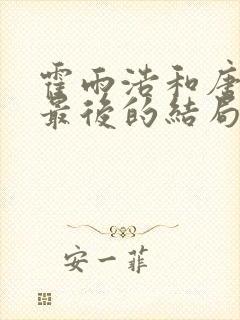 霍雨浩和唐
最後的結局
安一菲